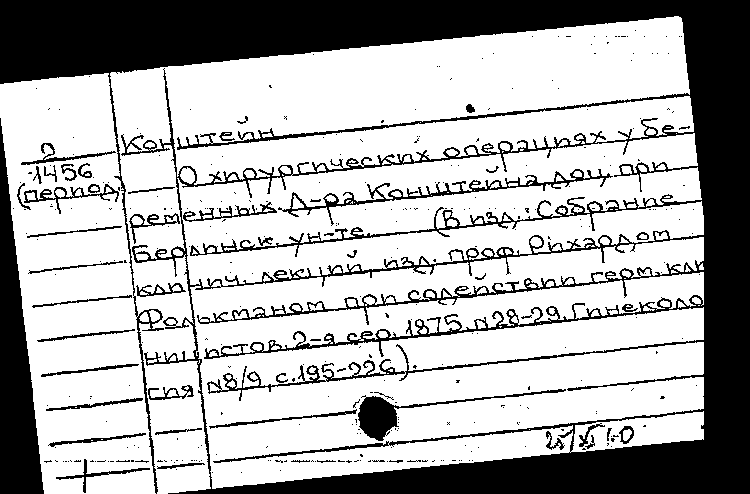 2
1456
(период)
Конштейн
О хирургических операциях у бе-
ременных. Д-ра Конштейна, доц. при
Берлинск. ун-те. (В изд.: Собрание
клинич. лекций, изд. проф. Рихардом
Фолькманом при содействии герм. кли
ницистов. 2-я сер. 1875. №28-29. Гинеколо
гия. №8/9, с.195-226).